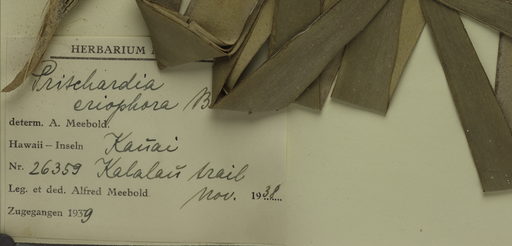 HERBARIUM
Pritchardia
eriophora B
determ. A. Meebold.
Hawaii – Inseln Kauai
Nr. 26359 Kalalau trail
Leg. et ded. Alfred Meebold. Nov. 1938
Zugegangen 1939